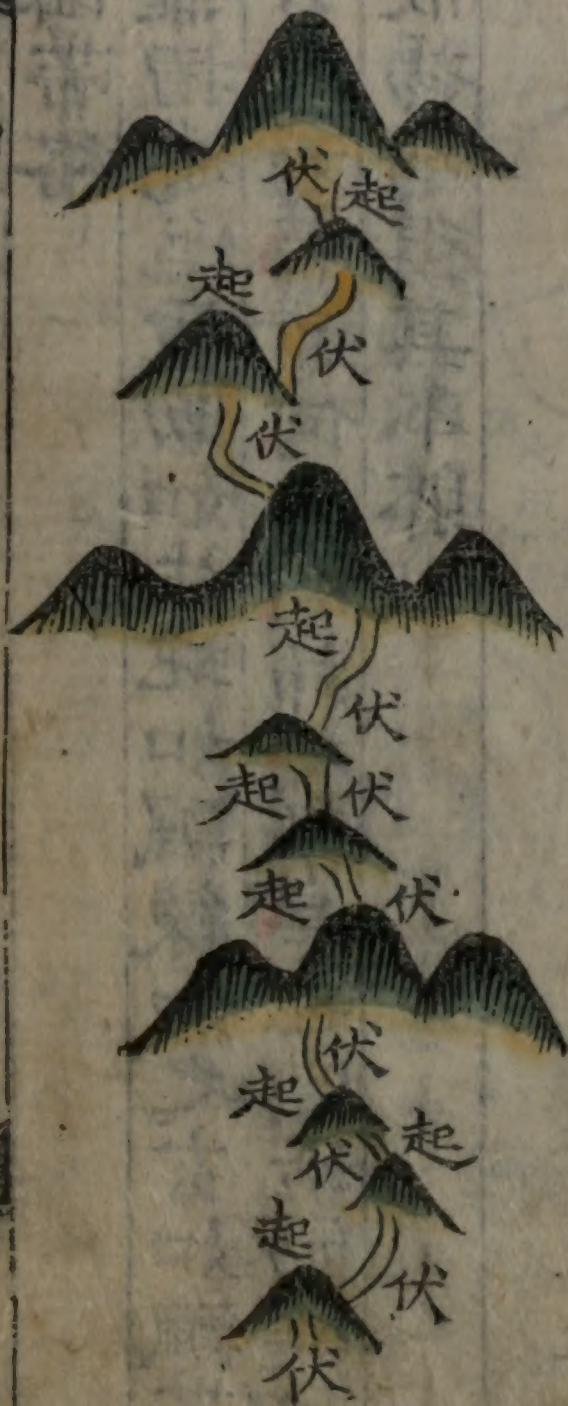 伏 起
起
伏
伏
起
伏
起 伏
起 伏
伏
起
起
伏
起
伏
伏